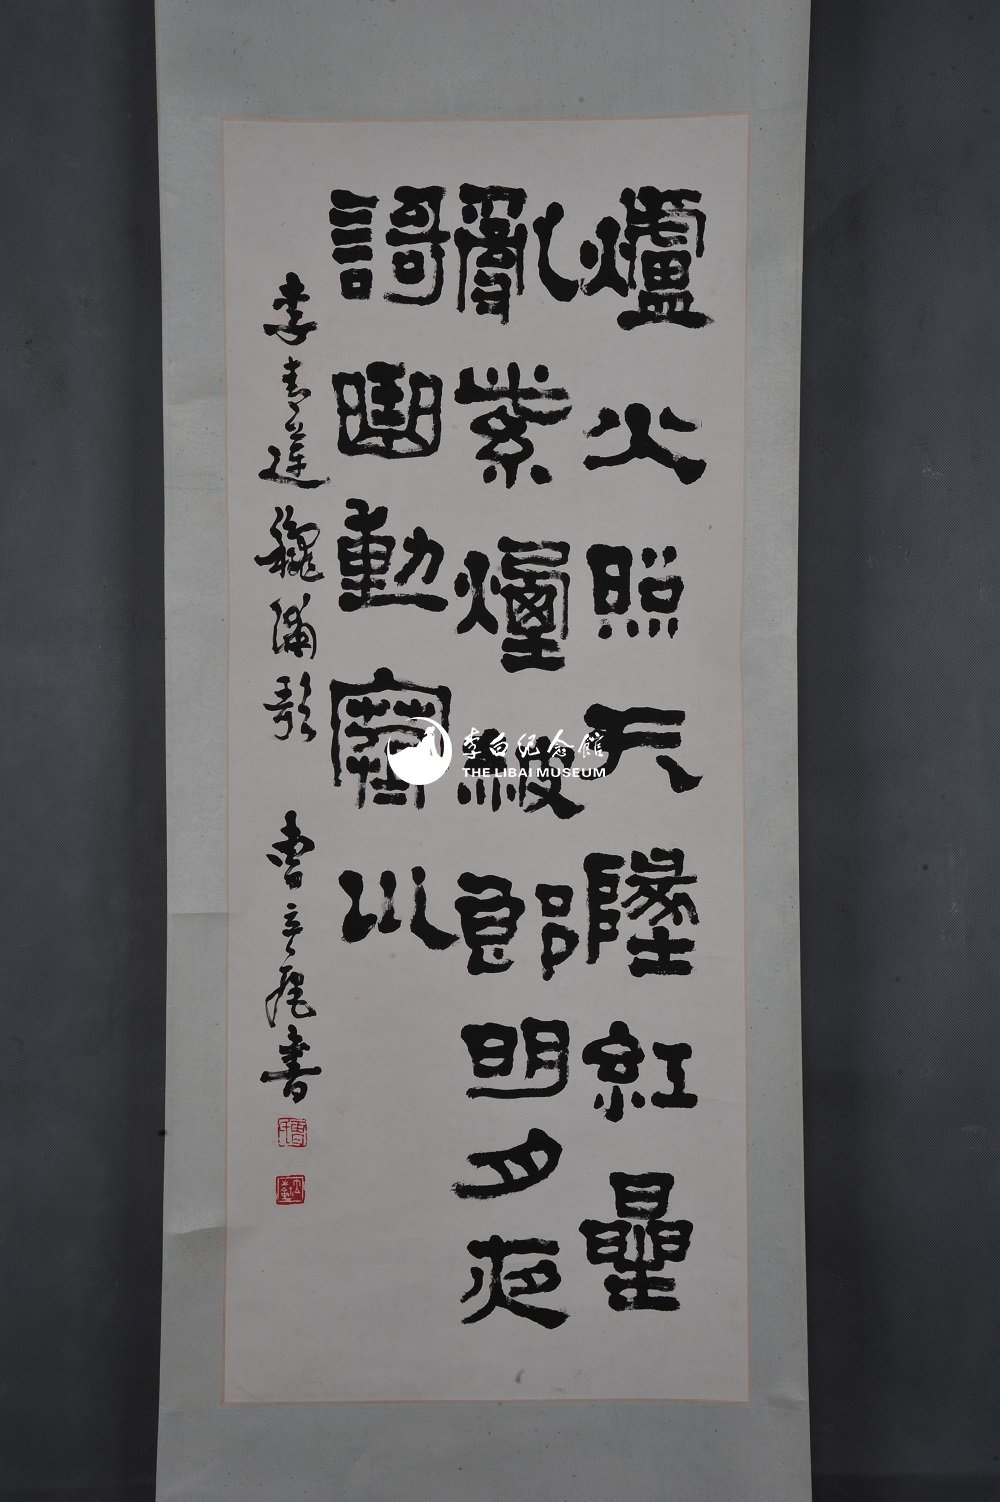 爐火照天墬紅曐
亂紫煙赧郎明月夜
謌曲動寒川
李青蓮龝浦歌 曹立庵書
李白纪念館
THE LIBAI MUSEUM